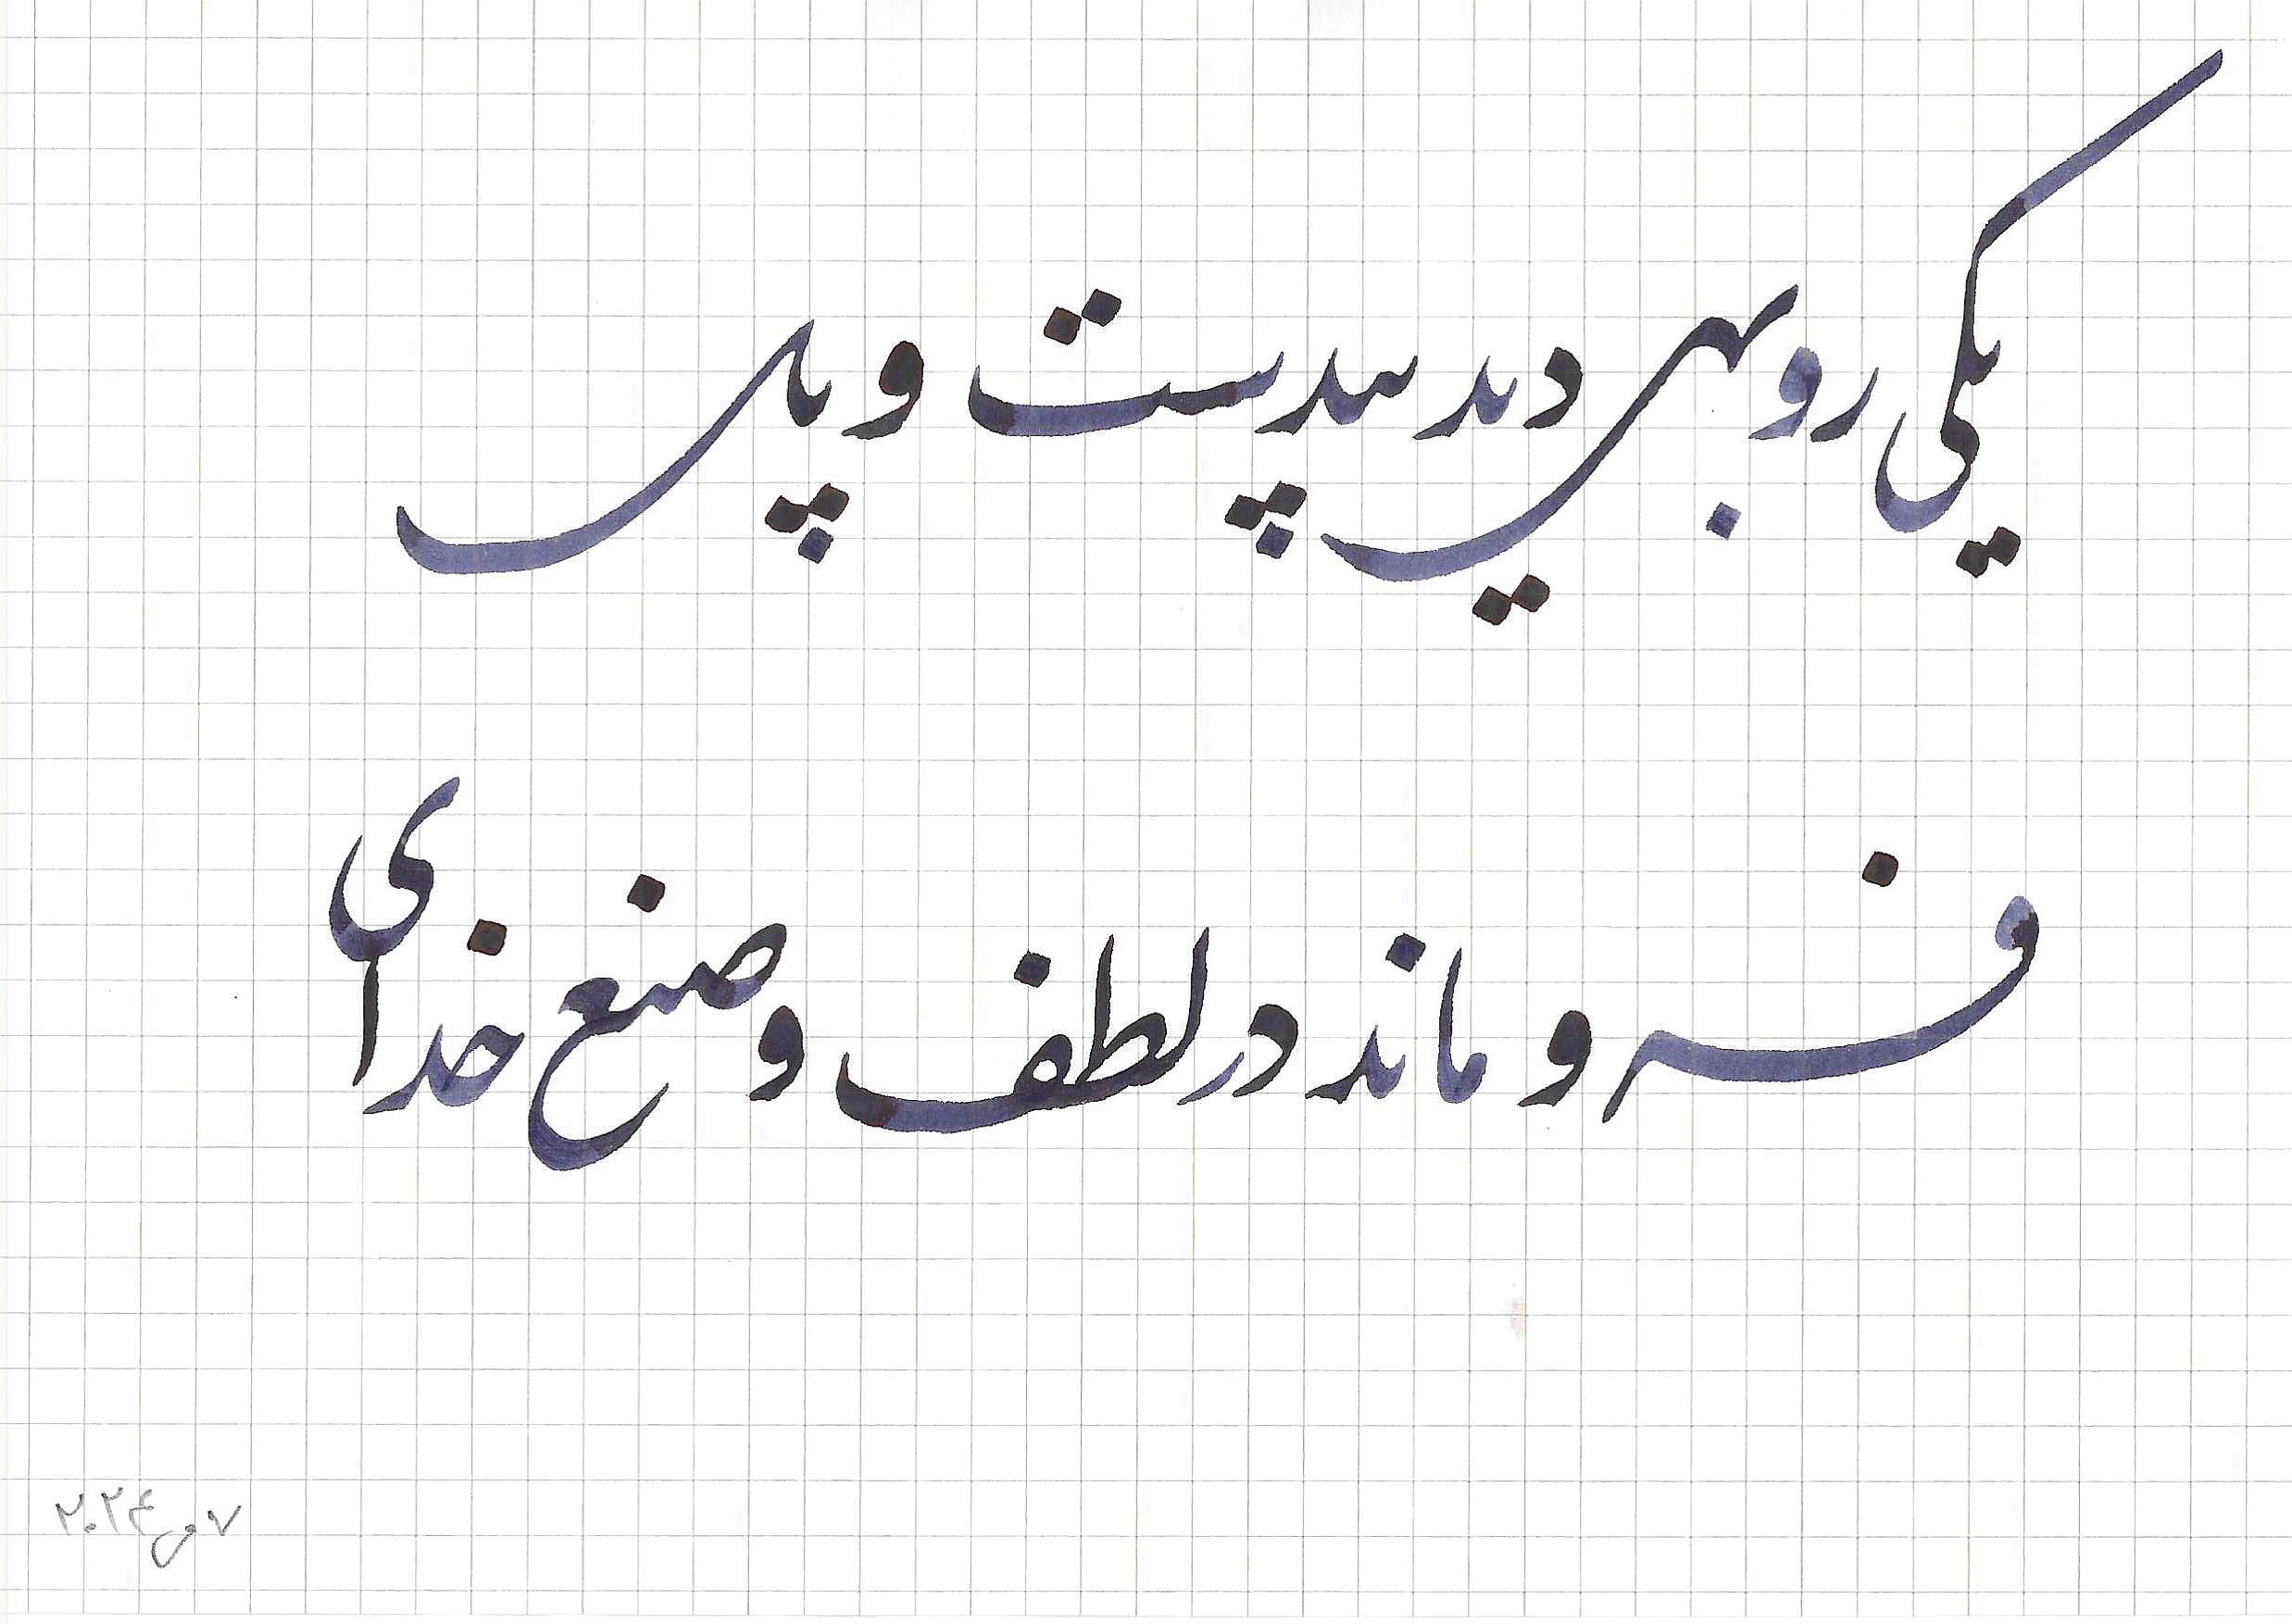 یکی روبهی دید بیدست و پای
فرو ماند در لطف و صنع خدای
۲۰۲۴